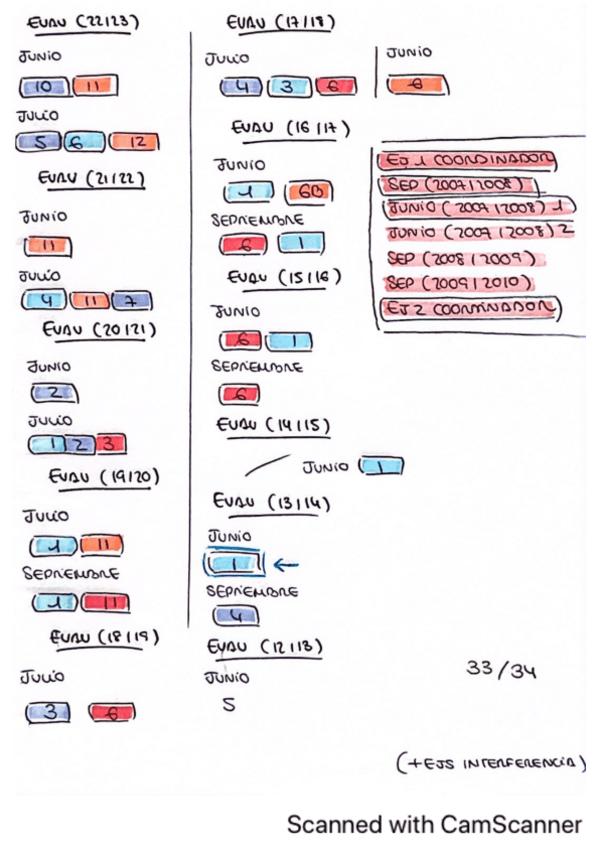 EVAU (22/23)
JUNIO
10 11
JULIO
5 6 12
EVAU (21/22)
JUNIO
11
JULIO
4 11 7
EVAU (20/21)
JUNIO
2
JULIO
1 2 3
EVAU (19/20)
JULIO
1 11
SEPTIEMBRE
1 11
EVAU (18/19)
JULIO
3 6
EVAU (17/18)
JULIO
4 3 6
JUNIO
6
EVAU (16/17)
JUNIO
1 6B
SEPTIEMBRE
6 1
EVAU (15/16)
JUNIO
6 1
SEPTIEMBRE
6
EVAU (14/15)
JUNIO 1
EVAU (13/14)
JUNIO
1 ←
SEPTIEMBRE
4
EVAU (12/13)
JUNIO
5
EJ 1 COORDINADOR
SEP (2007/2008)
JUNIO (2007/2008) 1
JUNIO (2007/2008) 2
SEP (2008/2009)
SEP (2009/2010)
EJ 2 COORDINADOR
33/34
(+EJS INTERFERENCIA)
Scanned with CamScanner